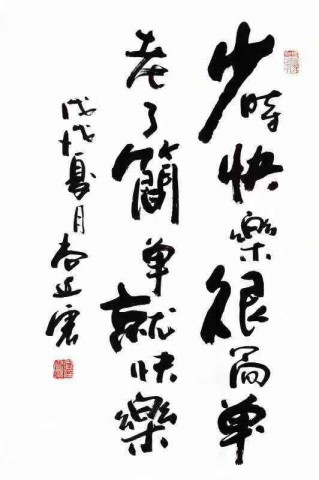 少時快樂很簡單
老了簡單就快樂
戊戌夏月